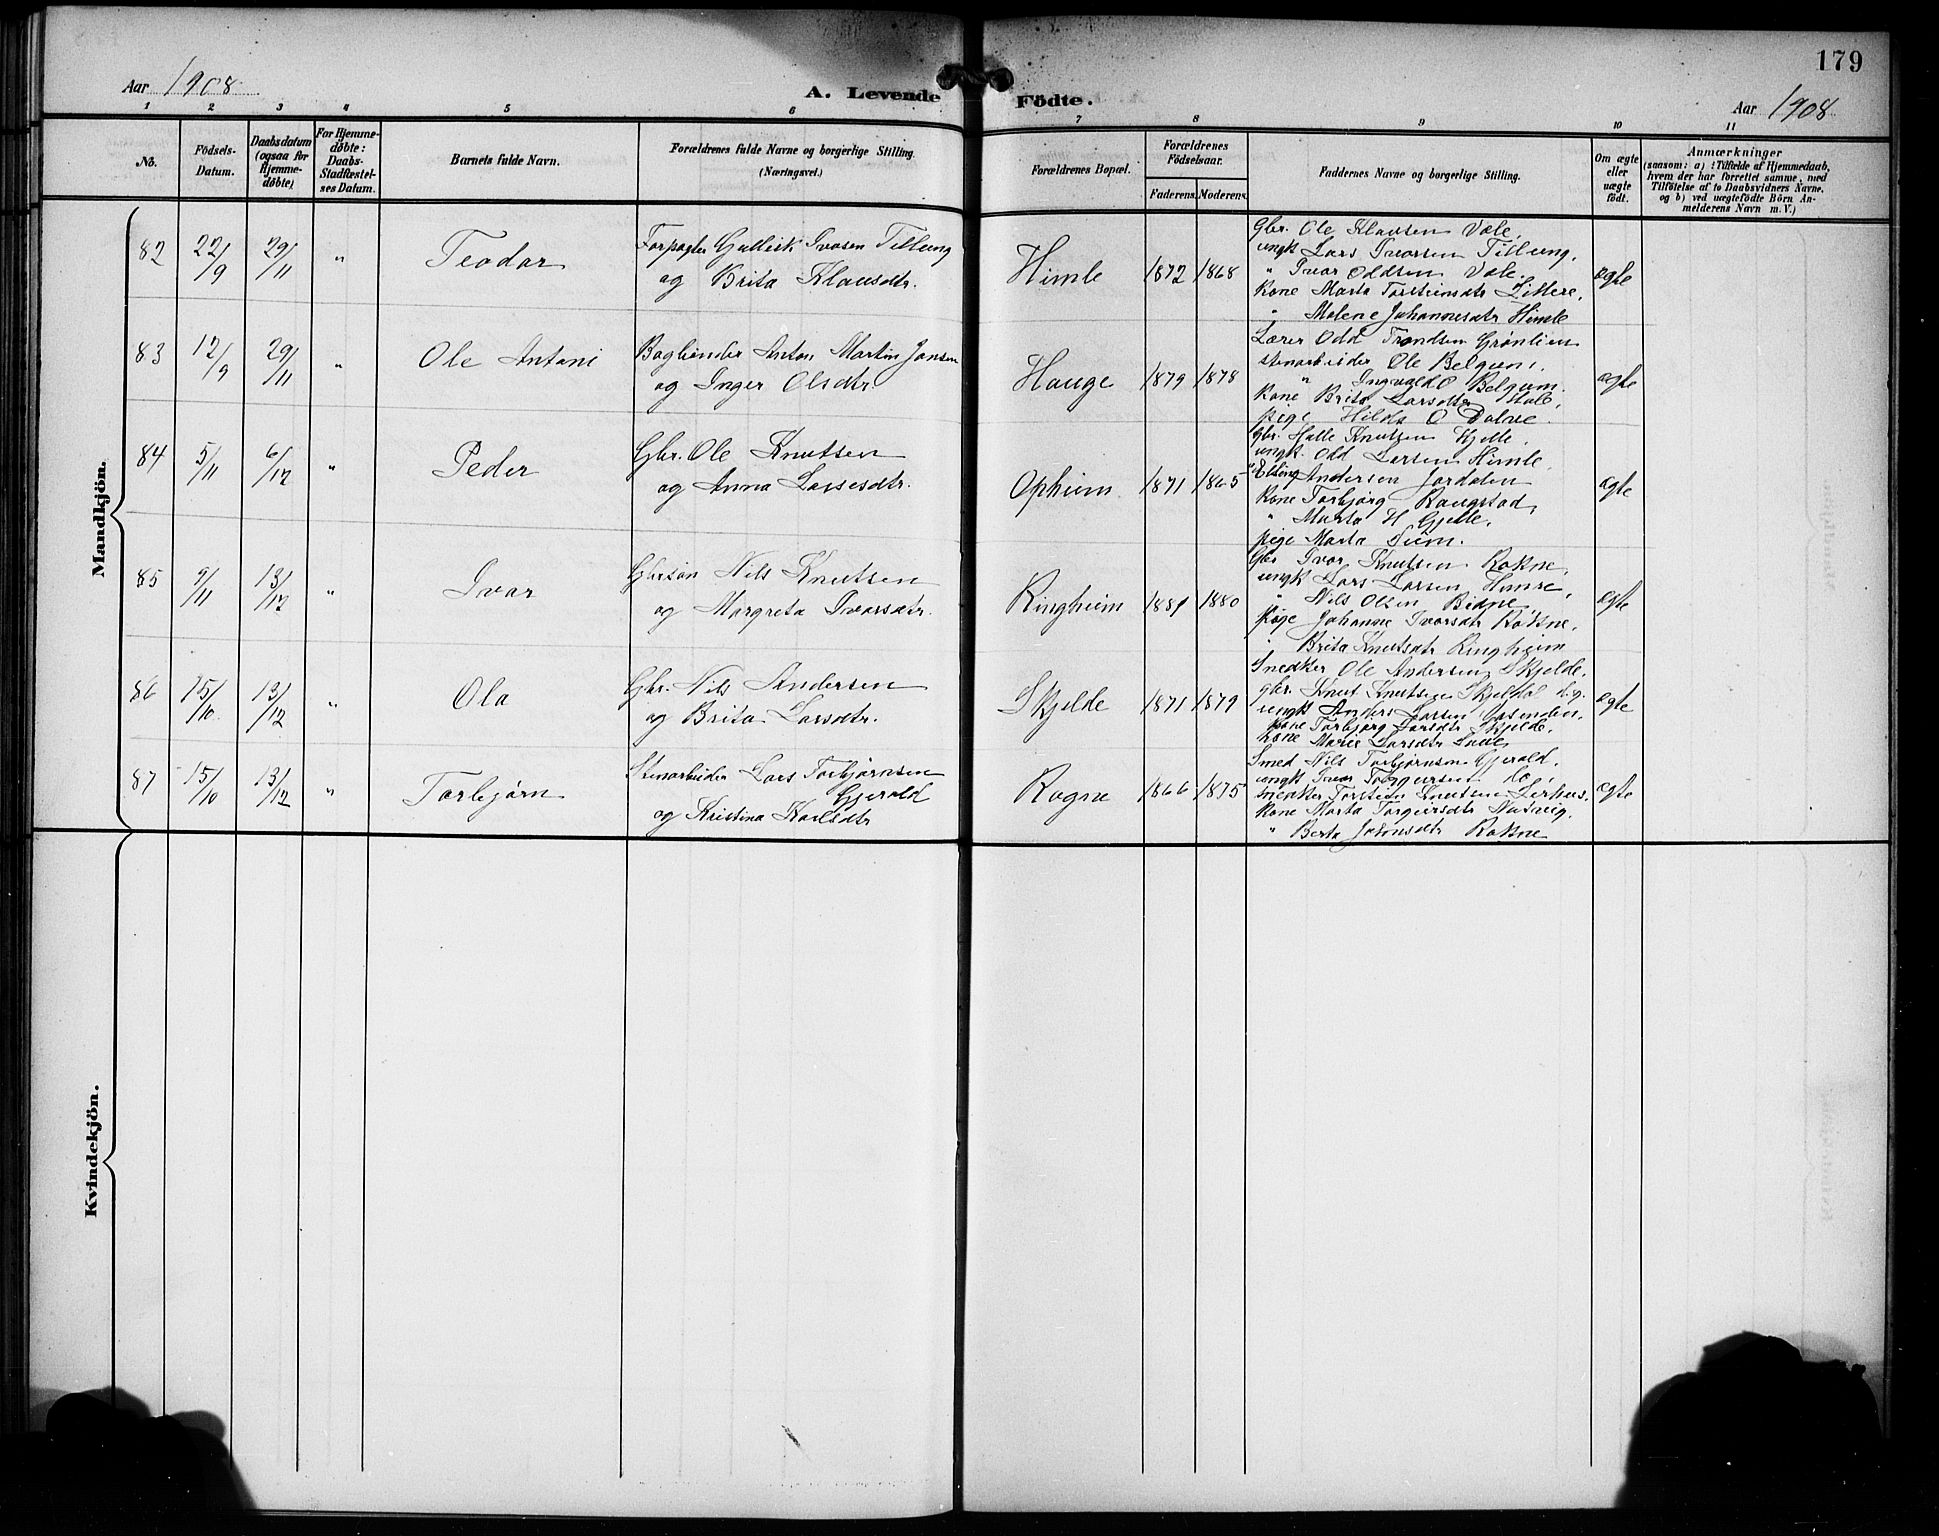 179
Aar 1908
A. Levende Födte.
Aar 1908
1 2 3 4 5 6 7 8 9 10 11
No.
Födsels-
Datum.
Daabsdatum
(ogsaa for
Hjemme-
døbte)
For Hjemme-
døbte:
Daabs-
Stadfæstel-
ses Datum.
Barnets fulde Navn.
Forældrenes fulde Navne og borgerlige Stilling.
(Næringsvei.)
Forældrenes Bopæl.
Forældrenes
Födselsaar.
Faderens. Moderens.
Faddernes Navne og borgerlige Stilling.
Om ægte
eller
uægte
født.
Anmærkninger
(saasom: a) i Tilfælde af Hjemmedaab,
hvem der har forrettet samme, med
Tilföielse af to Daabsvidners Navne,
og b) ved uægtefödte Börn An-
melderens Navn m. V.)
Mandkjön.
82 22/9 29/11 " Teodor
Forpagter Gulleik Ivarsen Tillung
og Brita Klausdtr.
Himle 1872 1868
Gbr. Ole Klausen Vale,
ungk Lars Ivarsen Tillung,
" Ivar Oddsen Vale.
Kone Marta Torsteinsdtr
" Malene Johannesdtr Himle
ægte
83 12/9 29/11 " Ole Antoni
Bogbinder Anton Martin Jansen
og Inger Olsdtr.
Hauge 1879 1878
Lærer Odd Trondsen Grönlien
stenarbeider Ole Belgum,
" Ingvald O Belgum.
Kone Brita Larsdtr
pige Hilda O Dalve.
ægte
84 5/11 6/12 " Peder
Gbr. Ole Knutsen
og Anna Lassesdtr.
Opheim 1871 1865
Gbr. Halle Knutsen Kjelle.
ungk. Odd Larsen Himle.
" Elling Andersen Jordalen
Kone Torbjørg Raugstad,
" Marta H Gjelle,
pige Marta
ægte
85 9/11 13/12 " Ivar
Gbrsön Nils Knutsen
og Margreta Ivarsdtr.
Ringheim 1881 1880
Gbr Ivar Knutsen Rokne,
ungk Lars Larsen
" Nils Olsen Bidne,
pige Johanne Ivarsdtr Rokne,
Brita Knutsdtr Ringheim
ægte
86 15/10. 13/12 " Ola
Gbr. Nils Andersen
og Brita Larsdtr.
Skjelde 1871 1879
Snedker Ole Andersen Skjelde,
gbr. Knut Knutsen
ungk Anders Larsen
Kone Torbjørg Larsdtr Skjelde,
Kone Marie Larsdtr
ægte
87 15/10 13/12 " Torbjørn
Stenarbeider Lars Torbjørnsen
Gjerald
og Kristina Karlsdtr
Rogne 1866 1875
Smed Nils Torbjørnsen Gjerald.
ungk Ivar Torgeirsen do,
snedker Torstein Knutsen Lirhus,
Kone Marta Torgeirsdtr
" Berta Rokne
ægte
Kvindekjön.